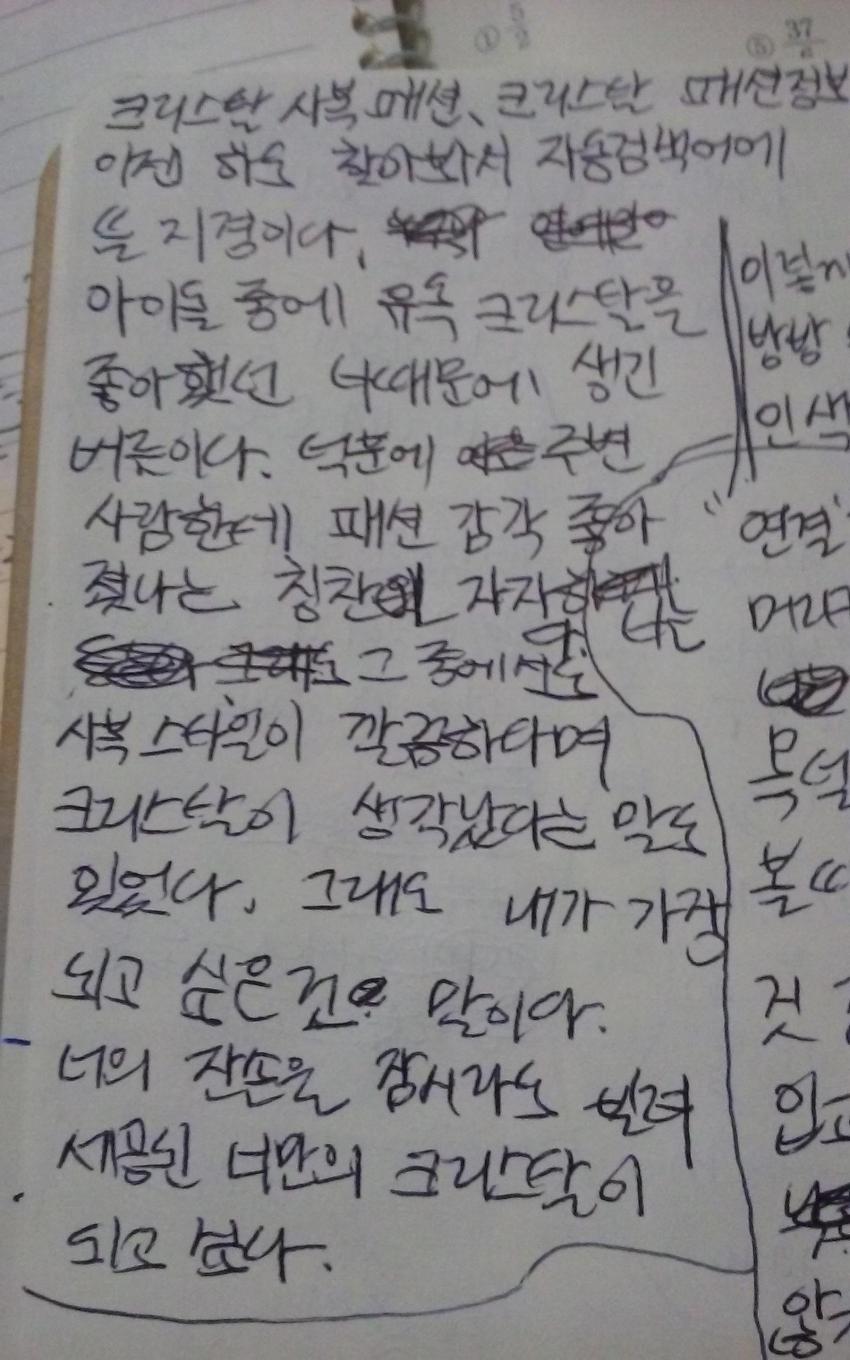 크리스탈 사복 패션, 크리스탈 패션정보
이젠 하도 찾아봐서 자동검색어에
뜰 지경이다.
아이돌 중에 유독 크리스탈을
좋아했던 너 때문에 생긴
버릇이다. 덕분에 주변
사람한테 패션 감각 좋아
졌냐는 칭찬이 자자하
다. 너는
그 중에서도
사복 스타일이 깔끔하다며
크리스탈이 생각났다는 말도
있었다. 그래도 내가 가장
되고 싶은 건 말이야.
너의 잔손을 잠시라도 빌려
세공된 너만의 크리스탈이
되고 싶다.
이렇게
방방
인색
"연결"
머리
볼 때
것
입고
① 5/2
⑤ 37/6